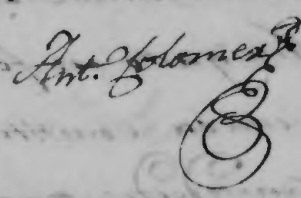 Ant. Colomer